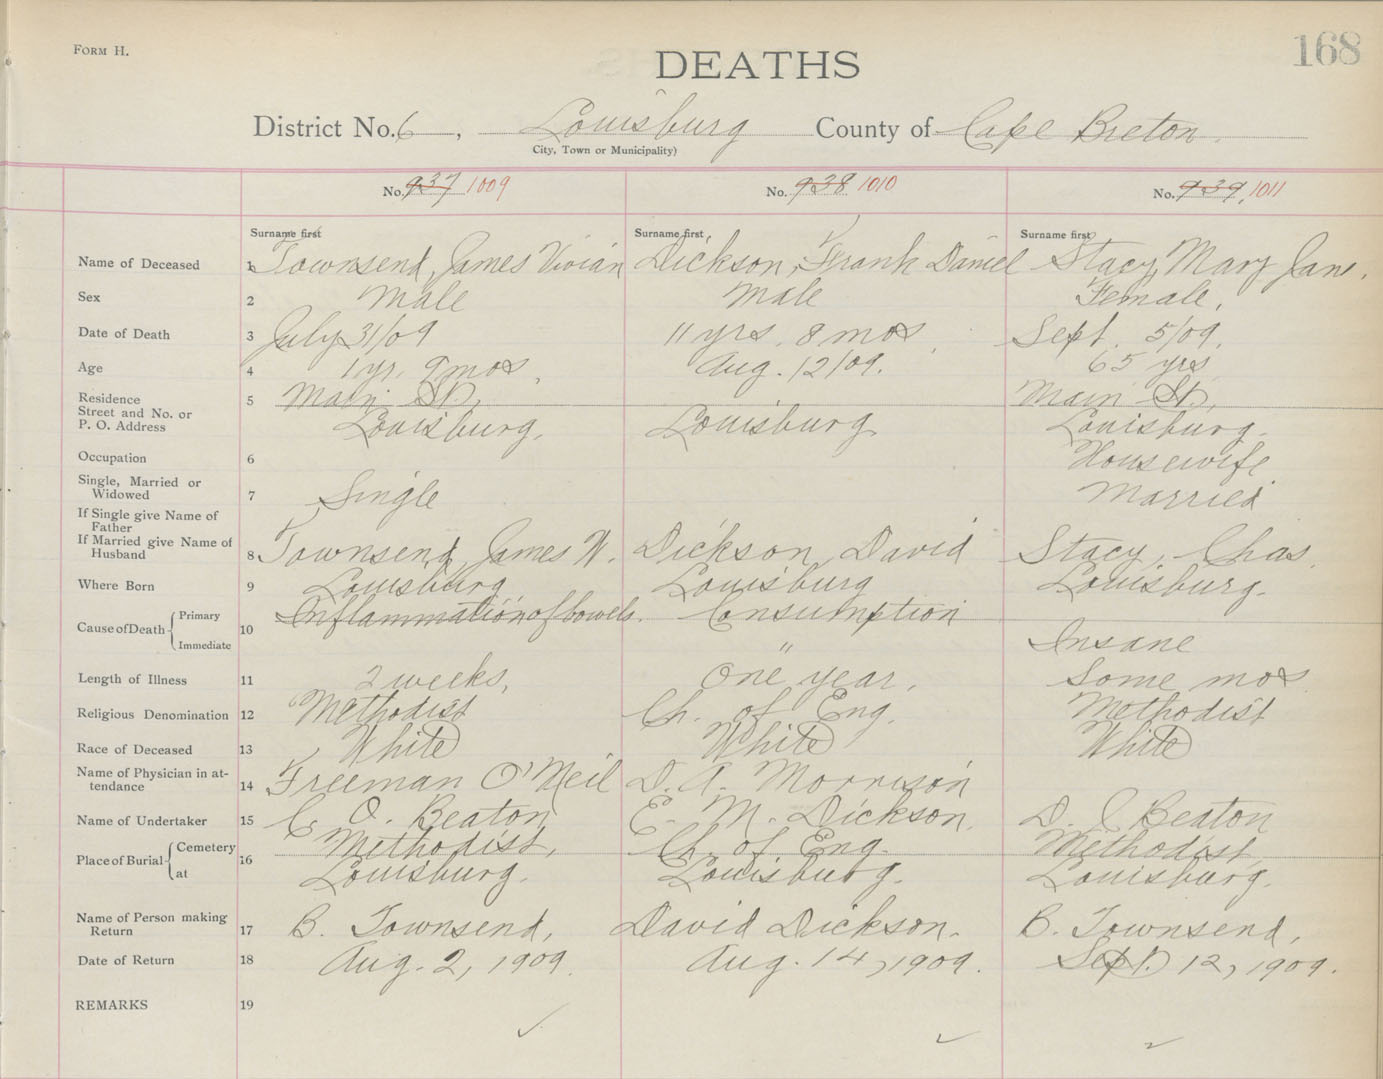 FORM H.
168
DEATHS
District No. 6, Louisburg County of Cape Breton.
City, Town or Municipality)
No. 937 1009 No. 938 1010 No. 939, 1011
Surname first Surname first Surname first
Name of Deceased 1 Townsend, James Vivian Dickson, Frank Daniel Stacy, Mary Jane.
Sex 2 Male Male Female,
Date of Death 3 July 31/09 11 yrs. 8 mos. Sept. 5/09.
Age 4 1 yr. 9 mos. Aug. 12/09. 65 yrs
Residence 5 Main St., Main St.,
Street and No. or
P. O. Address Louisburg. Louisburg Louisburg.
Occupation 6 Housewife
Single, Married or
Widowed 7 Single Married
If Single give Name of
Father
If Married give Name of
Husband 8 Townsend, James W. Dickson, David Stacy, Chas.
Where Born 9 Louisburg Louisburg Louisburg.
Cause of Death Primary 10 Inflammation of bowels. Consumption
Immediate " Insane
Length of Illness 11 2 weeks, One year, Some mos
Religious Denomination 12 Methodist Ch. of Eng. Methodist
Race of Deceased 13 White White White
Name of Physician in at-
tendance 14 Freeman O'Neil D. A. Morrison
Name of Undertaker 15 C. O. Beaton E. M. Dickson. D. C Beaton
Place of Burial Cemetery 16 Methodist, Ch. of Eng. Methodist,
at Louisburg. Louisburg. Louisburg.
Name of Person making
Return 17 B. Townsend, David Dickson. B. Townsend,
Date of Return 18 Aug. 2, 1909. Aug. 14, 1909. Sept. 12, 1909.
REMARKS 19